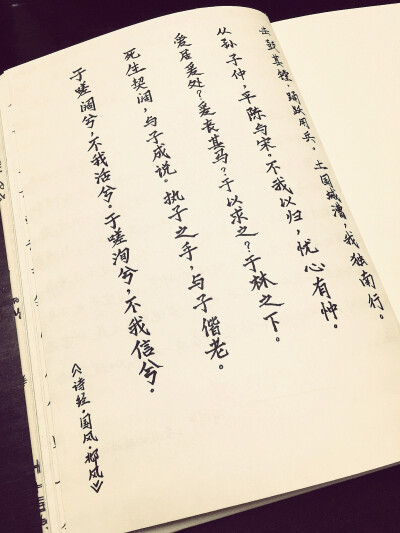 击鼓其镗，踊跃用兵。土国城漕，我独南行。
从孙子仲，平陈与宋。不我以归，忧心有忡。
爰居爰处？爰丧其马？于以求之？于林之下。
死生契阔，与子成说。执子之手，与子偕老。
于嗟阔兮，不我活兮。于嗟洵兮，不我信兮。
《诗经·国风·邶风》